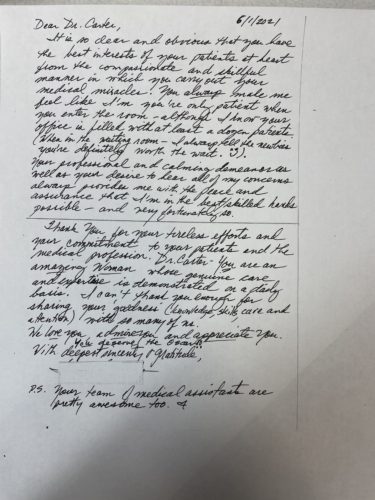 Dear Dr. Carter,
6/1/2021
It is so clear and obvious that you have
the best interests of your patients at heart
from the compassionate and skillful
manner in which you carry out your
medical miracles! You always make me
feel like I'm you're only patient when
you enter the room - although I know your
office is filled with at least a dozen patients
(When in the waiting room - I always tell the newbies
you're definitely worth the wait.
Your professional and calming demeanor as
well as your desire to hear all of my concerns
always provides me with the and
assurance that I'm in the best/skilled hands
possible - and very fortunately so.
Thank You, for your tireless efforts and
your commitment to your patients and the
medical profession. Dr. Carter - You are an
amazing Woman whose genuine care
and expertise is demonstrated on a daily
basis. I can't thank you enough for
sharing your goodness (knowledge, skills, care and
attention) with so many of us.
We love you, admire you and appreciate you.
(You deserve the
With deepest sincerity & gratitude,
P.S. Your team of medical assistants are
pretty awesome too.